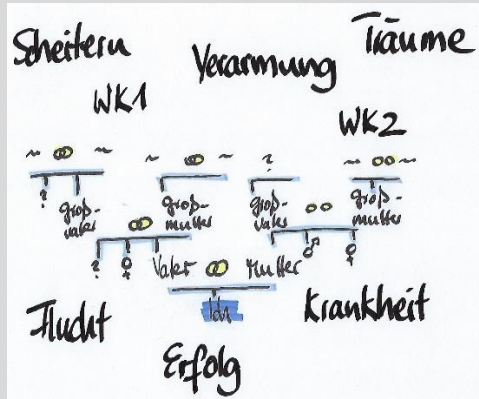 Scheitern
Verarmung
Träume
WK1
WK2
~ ~ ~ ~ ? ~ ~
? groß-
vater
groß-
mutter
groß-
vater
groß-
mutter
? ♀ Vater Mutter ♂ ♀
Ich
Flucht
Krankheit
Erfolg